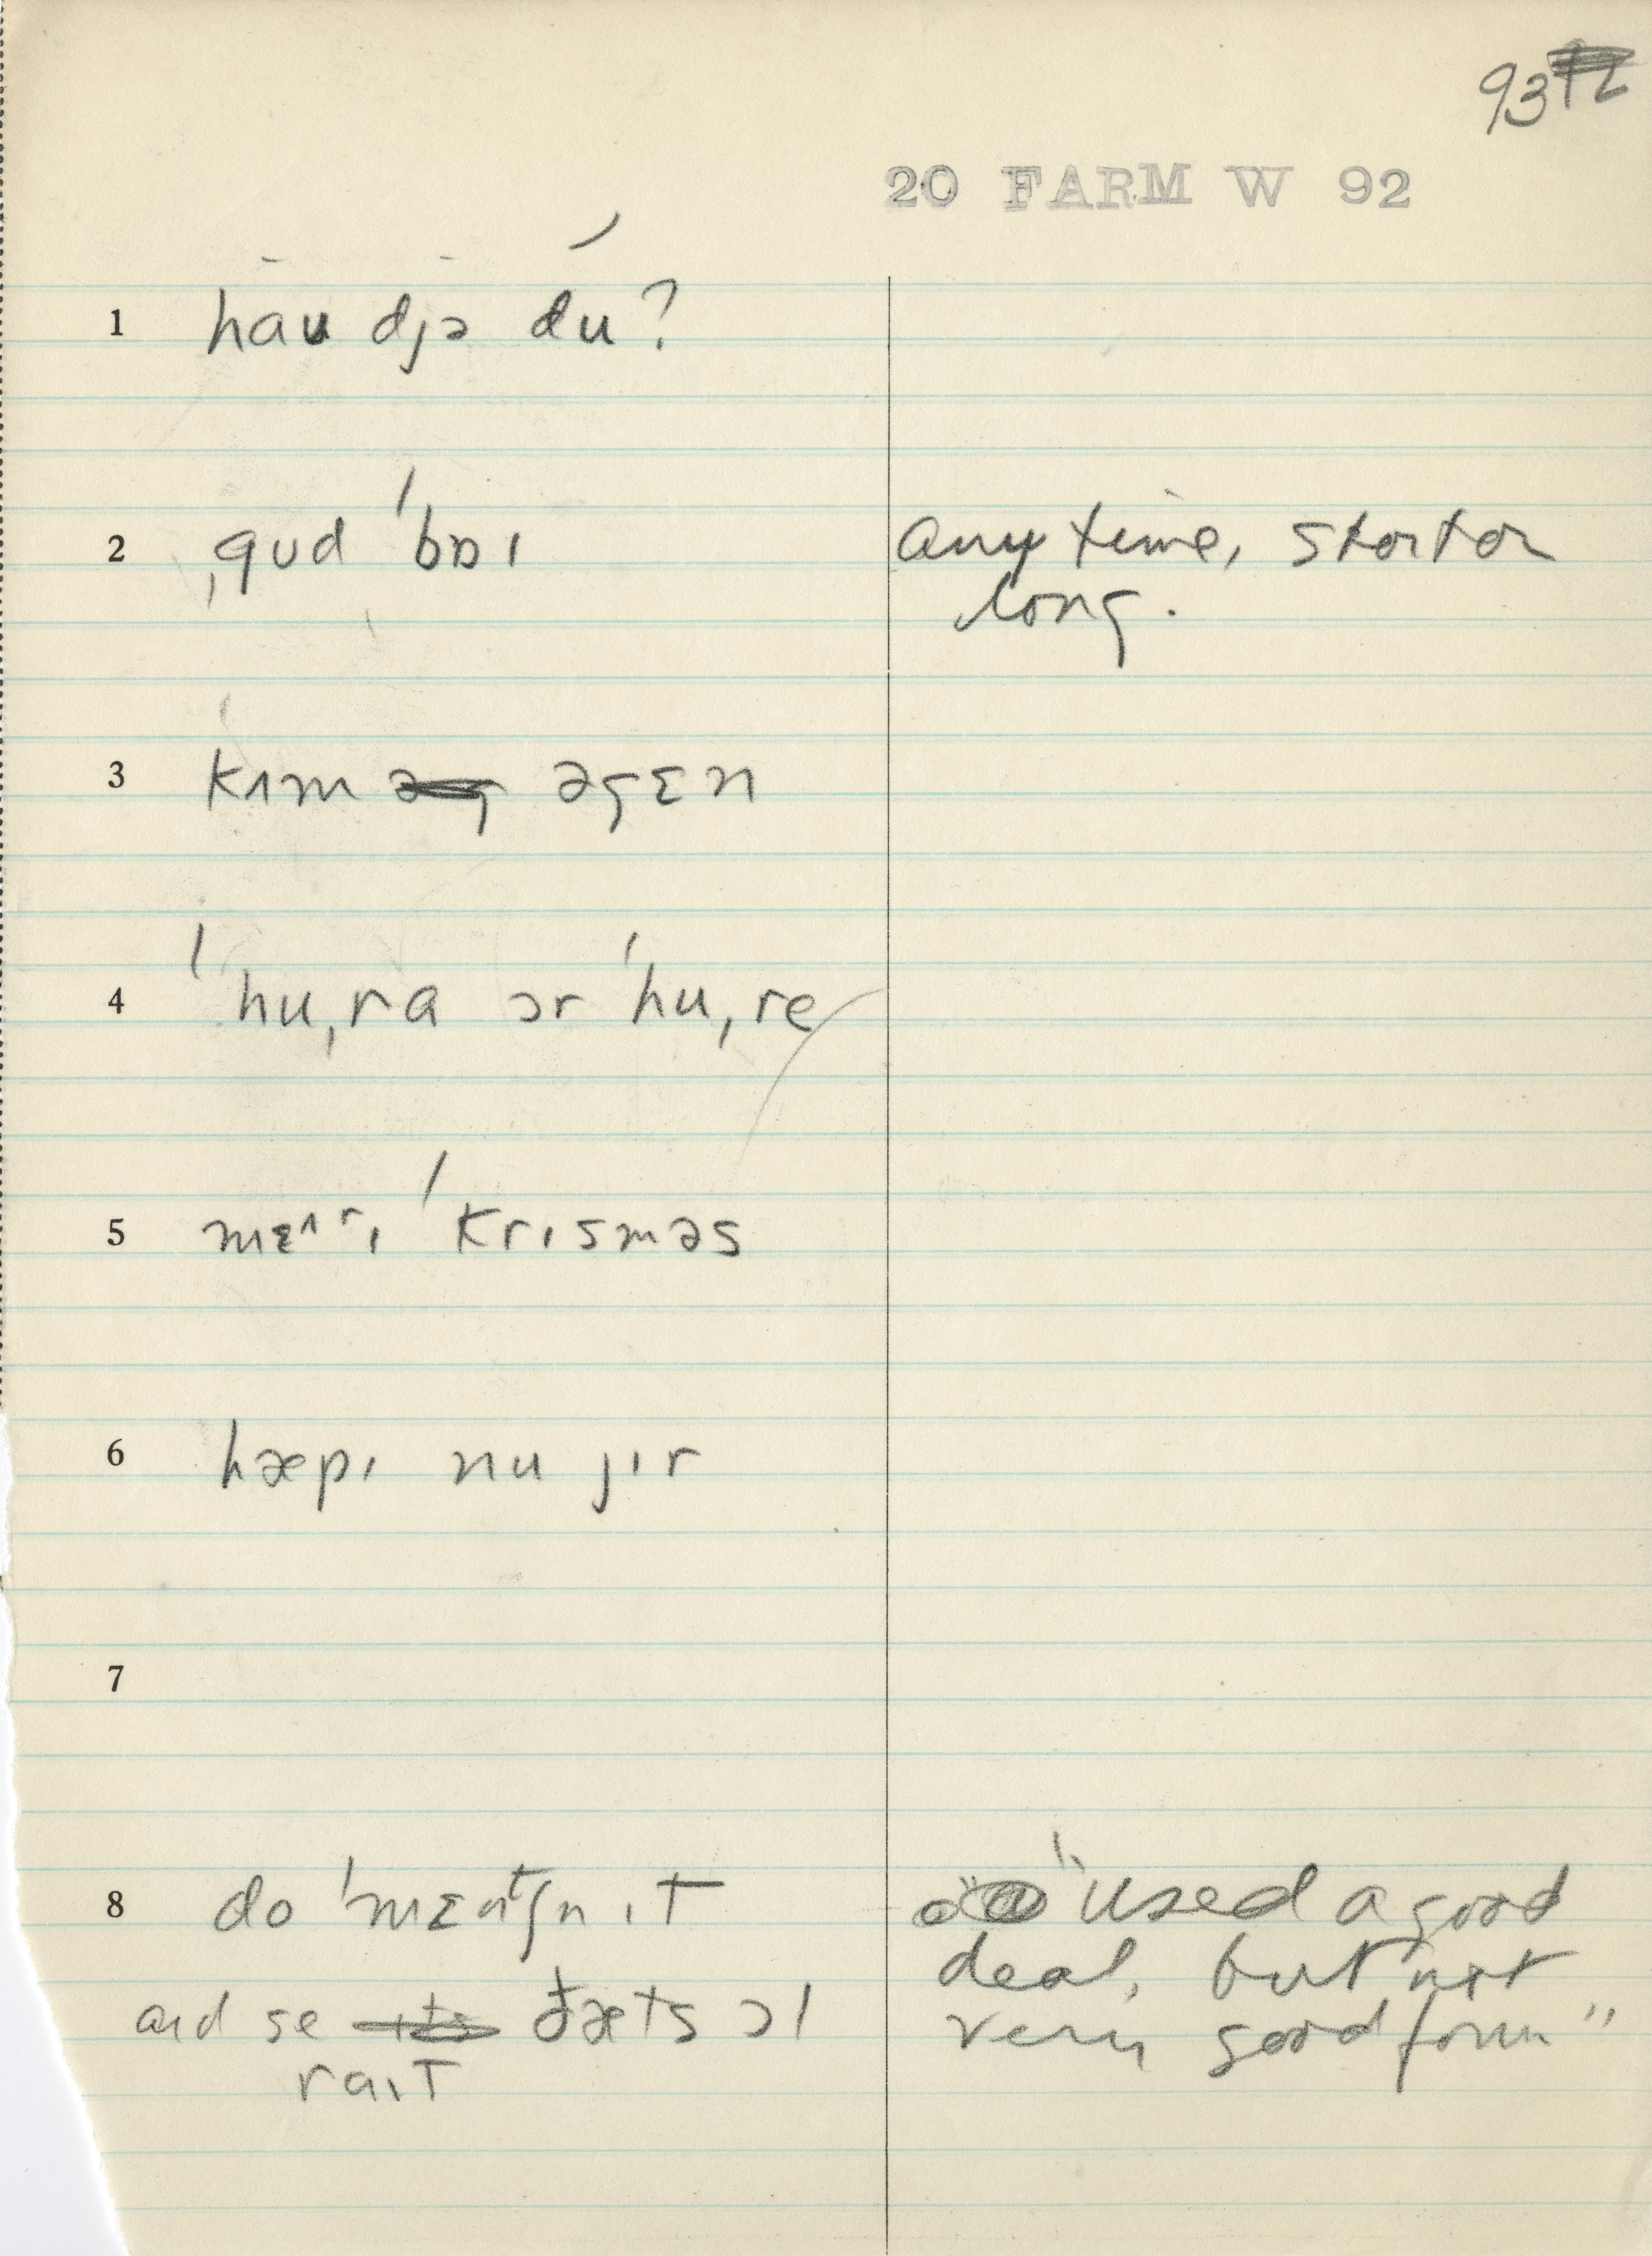 93
20 FARM W 92
1 haʊ djə du?
2 ˌgʊd ˈbɒɪ any time, short or
long.
3 kʌm əgɛn
4 ˈhuˌra ɔr ˈhuˌre
5 mɛʌrɪ ˈkrɪsməs
6 hæpɪ nu jɪr
7
8 do ˈmɛntʃn ɪt "used a good
deal, but not
and se ðæts ɔl very good form"
raɪt